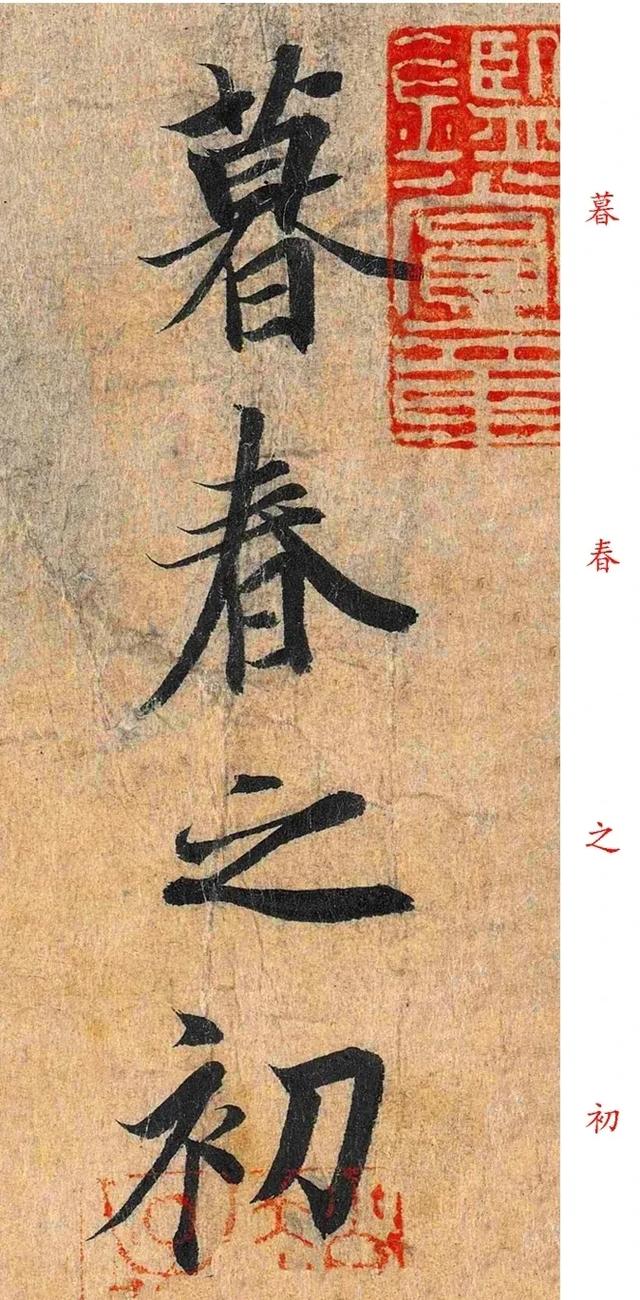 暮春之初
暮
春
之
初